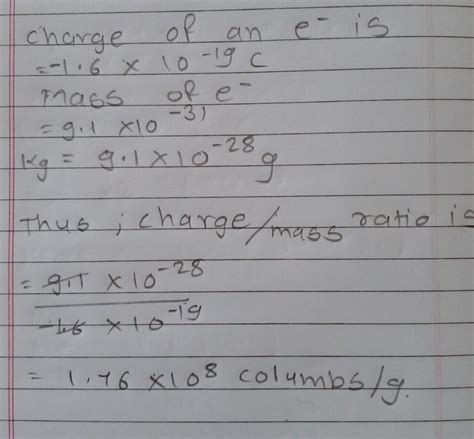 charge of an e⁻ is
= -1.6 × 10⁻¹⁹ C
Mass of e⁻
= 9.1 × 10⁻³¹
Kg = 9.1 × 10⁻²⁸ g
Thus ; charge/mass ratio is
= 9.1 × 10⁻²⁸
-1.6 × 10⁻¹⁹
= 1.76 × 10⁸ columbs/g.